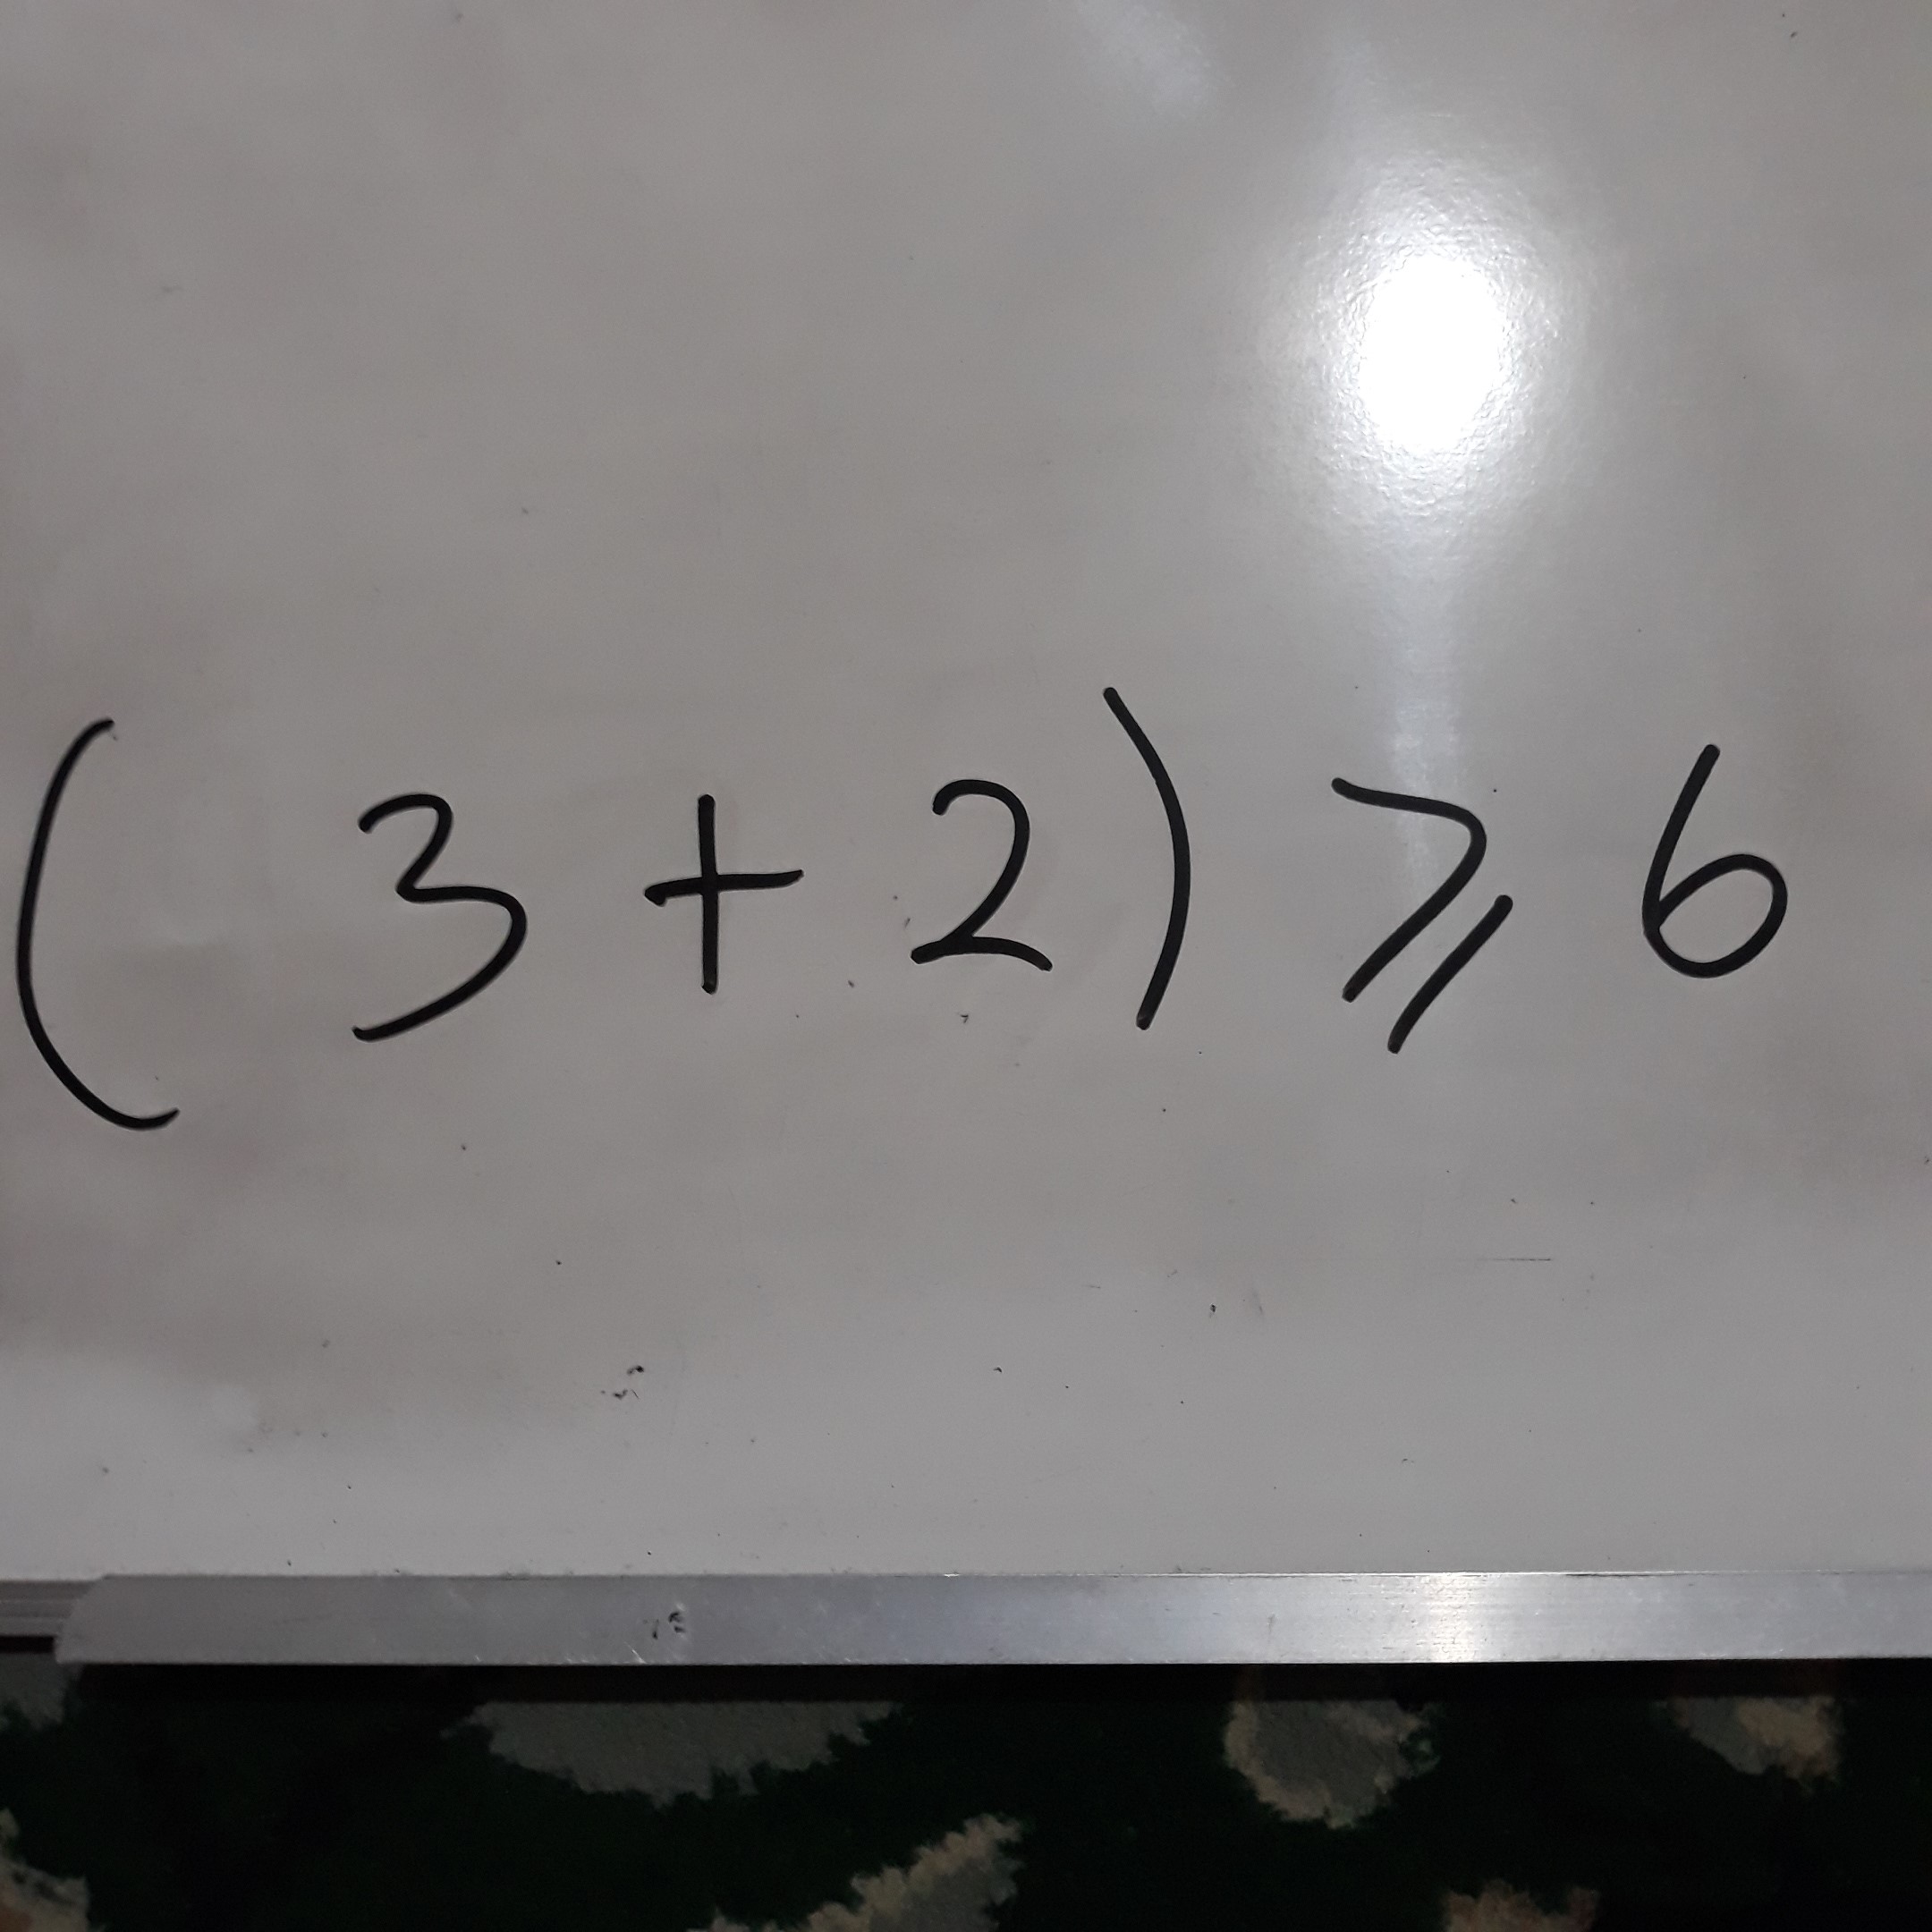 (3+2)⩾6